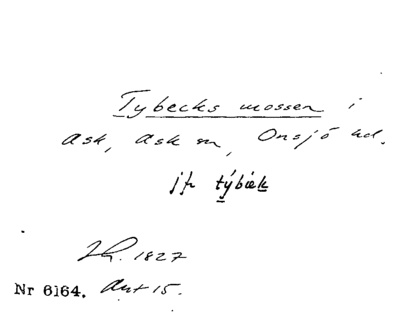 Tybecks mossen i
Ask, Ask sn, Onsjö hd.
jfr týbæk
1827
Nr 6164. Ant 15.